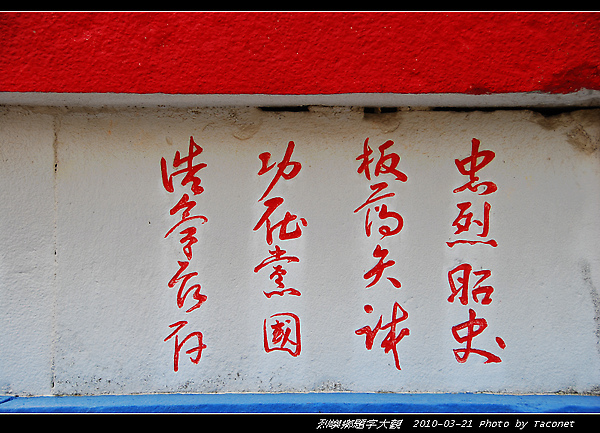 忠烈昭史
板蕩矢誠
功在黨國
浩氣長存
烈嶼鄉題字大觀 2010-03-21 Photo by Taconet